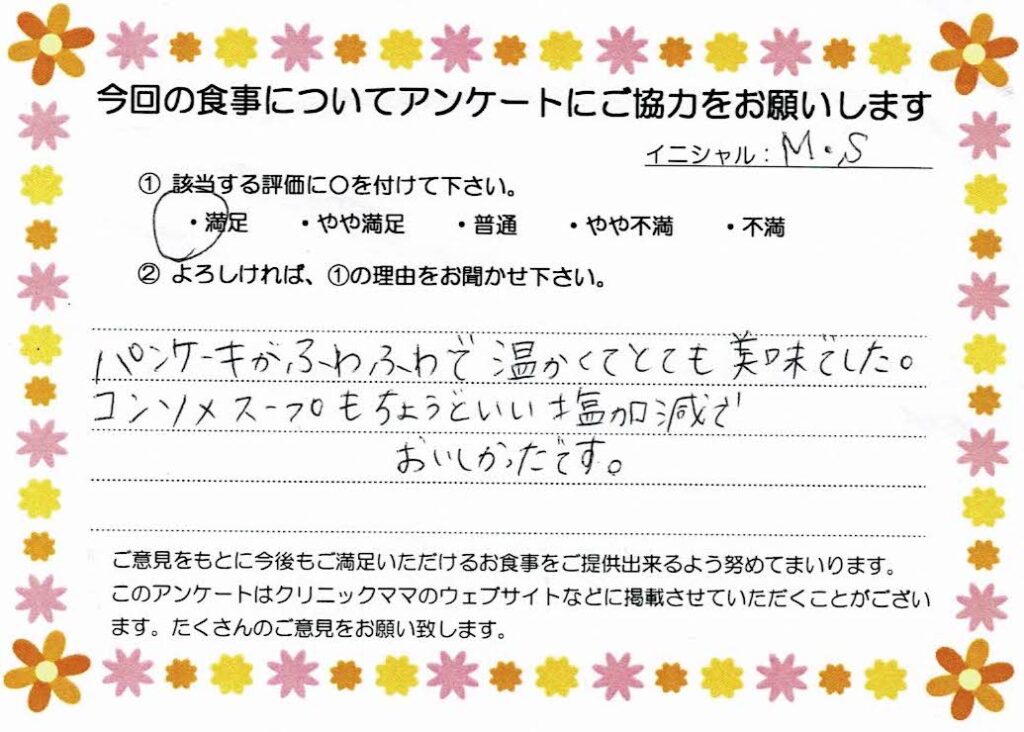 今回の食事についてアンケートにご協力をお願いします
イニシャル：M・S
① 該当する評価に〇を付けて下さい。
・満足　・やや満足　・普通　・やや不満　・不満
② よろしければ、①の理由をお聞かせ下さい。
パンケーキがふわふわで温かくてとても美味でした。
コンソメスープもちょうどいい塩加減で
おいしかったです。
ご意見をもとに今後もご満足いただけるお食事をご提供出来るよう努めてまいります。
このアンケートはクリニックママのウェブサイトなどに掲載させていただくことがござい
ます。たくさんのご意見をお願い致します。